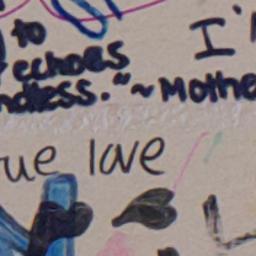 to
I'
echoes
ndless."~Mothe
ue love